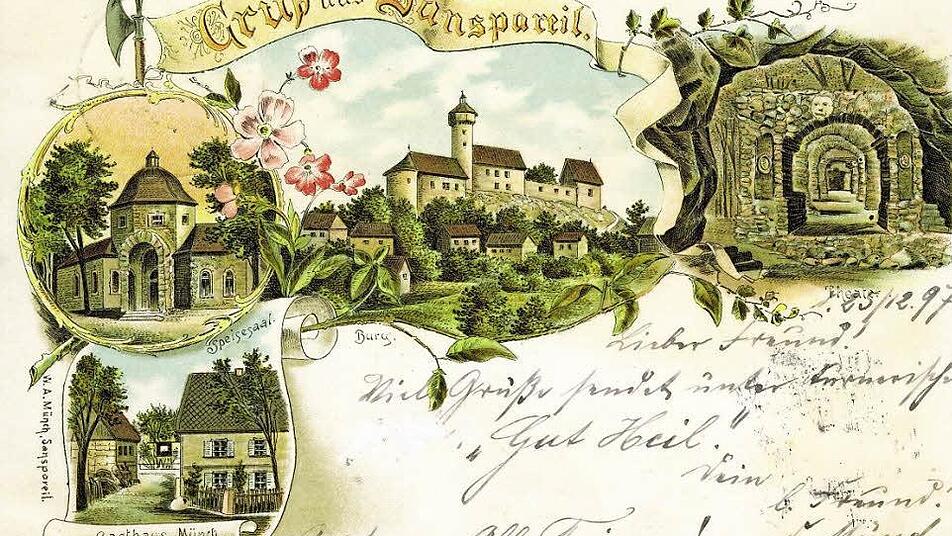 Gruß aus Sanspareil.
Theater.
Speisesaal.
Burg.
W. A. Münch, Sanspareil.
Gasthaus Münch
23/12.97
Lieber Freund!
Viel Grüße sendet unter
„Gut Heil."
Dein
Freund.